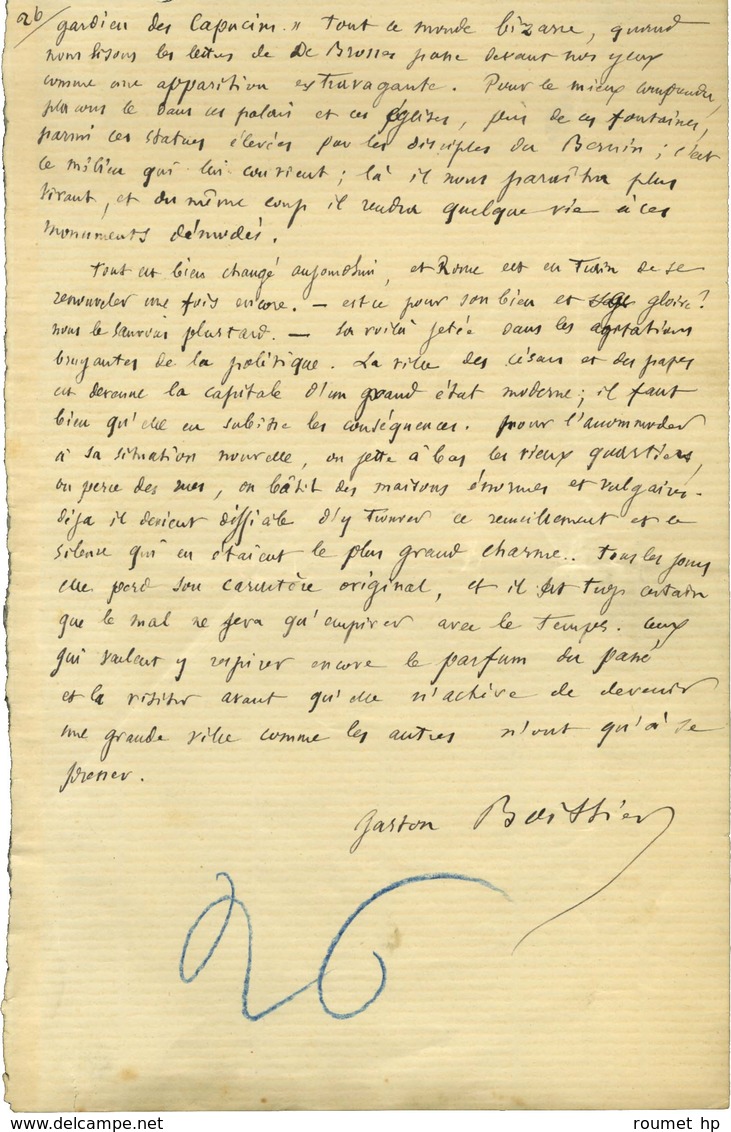 26/
gardien des Capucins." Tout ce monde bizarre, quand
nous lisons les lettres de De Brosses passe devant nos yeux
comme une apparition extravagante. Pour le mieux comprendre,
plaçons le dans ces palais et ces églises, près de ces fontaines,
parmi ces statues élevées par les disciples du Bernin ; c'est
le milieu qui lui convient ; là il nous paraîtra plus
vivant, et du même coup il rendra quelque vie à ces
monuments démodés.
Tout est bien changé aujourd'hui, et Rome est en train de se
renouveler une fois encore. — est ce pour son bien et sa gloire ?
nous le saurons plus tard. — La voilà jetée dans les agitations
bruyantes de la politique. La ville des césars et des papes
est devenue la capitale d'un grand état moderne ; il faut
bien qu'elle en subisse les conséquences. pour l'accommoder
à sa situation nouvelle, on jette à bas les vieux quartiers,
on perce des rues, on bâtit des maisons énormes et vulgaires.
Déjà il devient difficile d'y trouver ce recueillement et ce
silence qui en étaient le plus grand charme.. Tous les jours
elle perd son caractère original, et il est trop certain
que le mal ne fera qu'empirer avec le temps. Ceux
qui veulent y respirer encore le parfum du passé
et la visiter avant qu'elle n'achève de devenir
une grande ville comme les autres n'ont qu'à se
presser.
Gaston Boissier
26
www.ebay.com
roumet hp